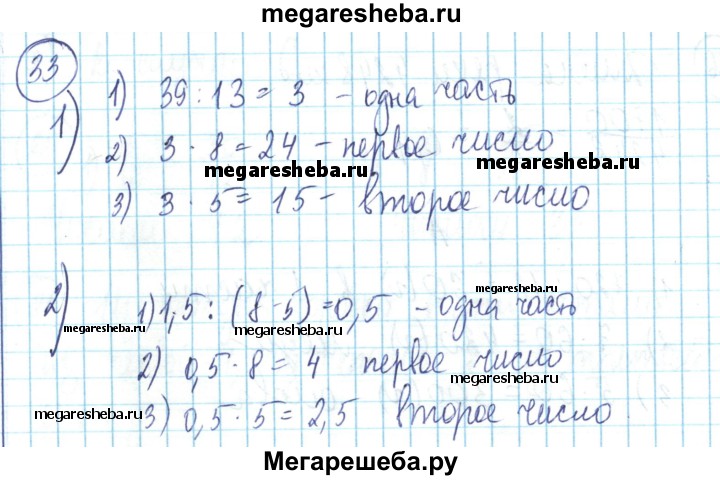 megaresheba.ru
33
1) 1) 39 : 13 = 3 - одна часть
2) 3 · 8 = 24 - первое число
megaresheba.ru megaresheba.ru
3) 3 · 5 = 15 - второе число
megaresheba.ru
2) 1) 1,5 : (8-5) = 0,5 - одна часть
megaresheba.ru megaresheba.ru
2) 0,5 · 8 = 4 первое число
megaresheba.ru
megaresheba.ru
3) 0,5 · 5 = 2,5 второе число
Мегарешеба.ру